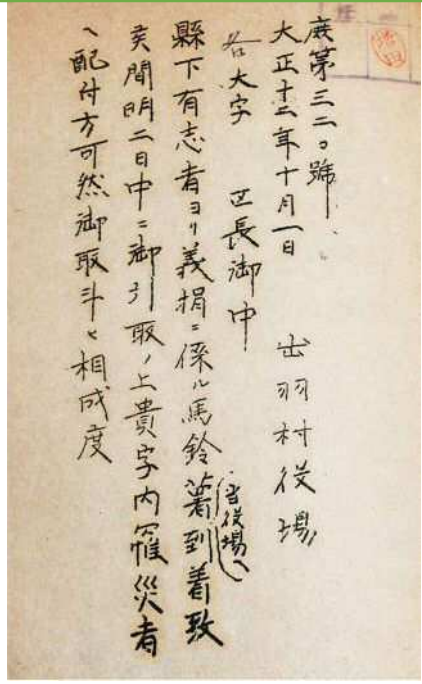 庶第三二〇號
大正十二年十月一日
出羽村役場
各大字 区長御中
縣下有志者ヨリ義捐ニ係ル馬鈴薯当役場ヘ到着致
候間明二日中ニ御引取ノ上貴字内罹災者
ヘ配付方可然御取斗ヒ相成度